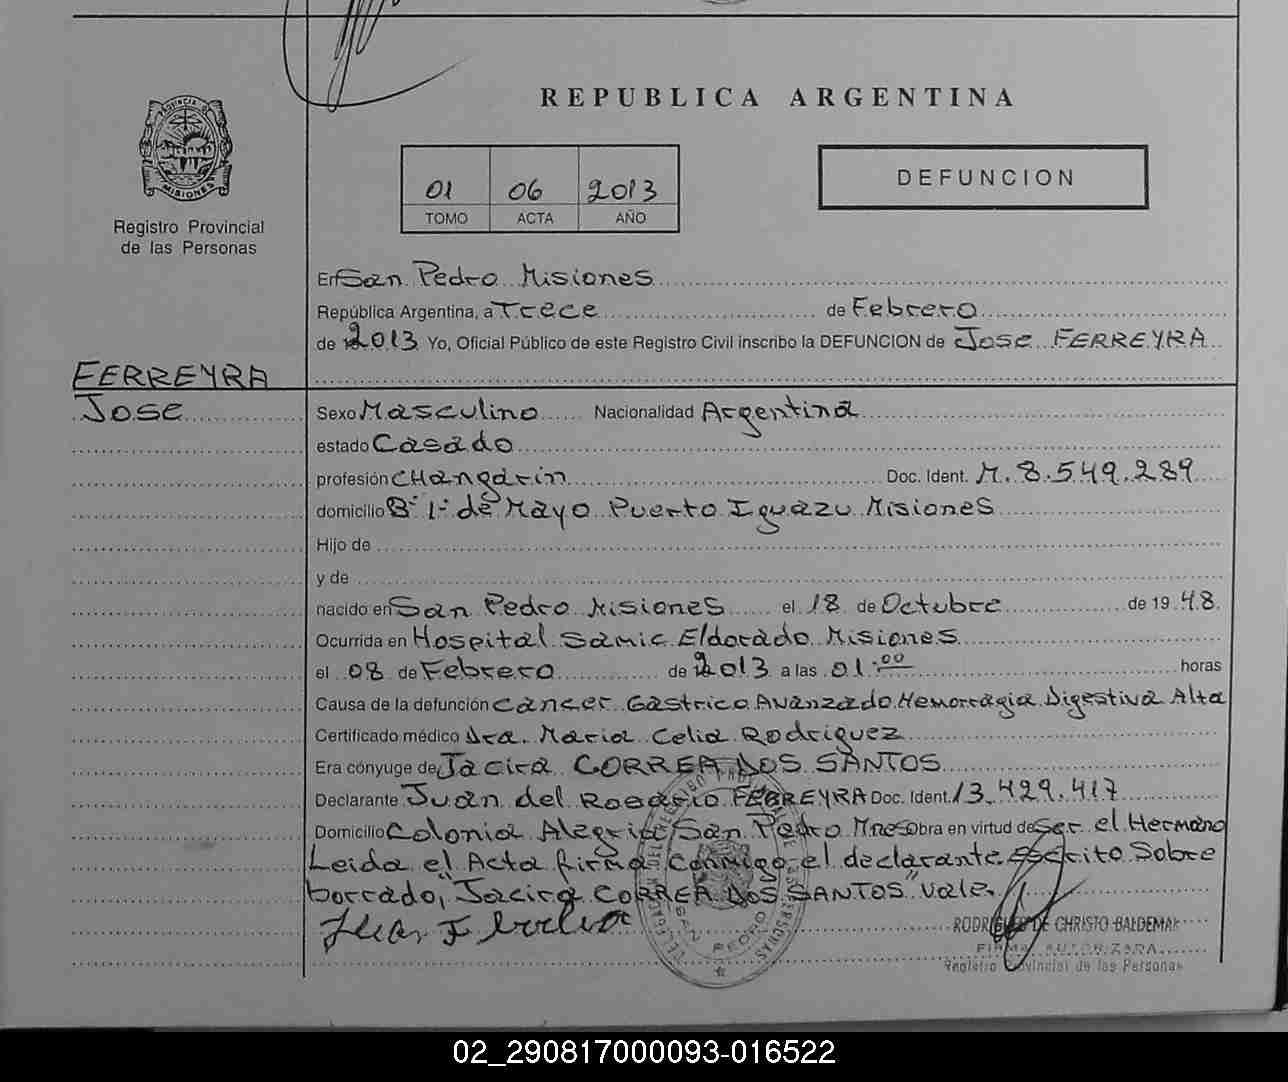 REPUBLICA ARGENTINA
PROVINCIA DE
MISIONES
Registro Provincial
de las Personas
01 06 2013
TOMO ACTA AÑO
DEFUNCION
En San Pedro Misiones
República Argentina, a Trece de Febrero
de 2013 Yo, Oficial Público de este Registro Civil inscribo la DEFUNCION de Jose FERREYRA
FERREYRA
Jose
Sexo Masculino Nacionalidad Argentina
estado Casado
profesión CHangarin Doc. Ident. M. 8.549.289
domicilio B° 1° de Mayo Puerto Iguazu Misiones
Hijo de
y de
nacido en San Pedro Misiones el 18 de Octubre de 1948.
Ocurrida en Hospital Samic Eldorado Misiones
el 08 de Febrero de 2013 a las 01:00 horas
Causa de la defunción Cancer Gastrico Avanzado Hemorragia Digestiva Alta
Certificado médico Dra. Maria Celia Rodriguez
Era cónyuge de Jacira CORREA DOS SANTOS
Declarante Juan del Rosario FERREYRA Doc. Ident. 13.429.417
Domicilio Colonia Alegria San Pedro Mnes Obra en virtud de Ser el Hermano
Leida el Acta firma conmigo el declarante Escrito Sobre
borrado, "Jacira CORREA DOS SANTOS" vale.
Juan F
RODRIGUES DE CHRISTO BALDEMAR
FIRMA AUTORIZADA
Registro Provincial de las Personas
SAN PEDRO
02_290817000093-016522